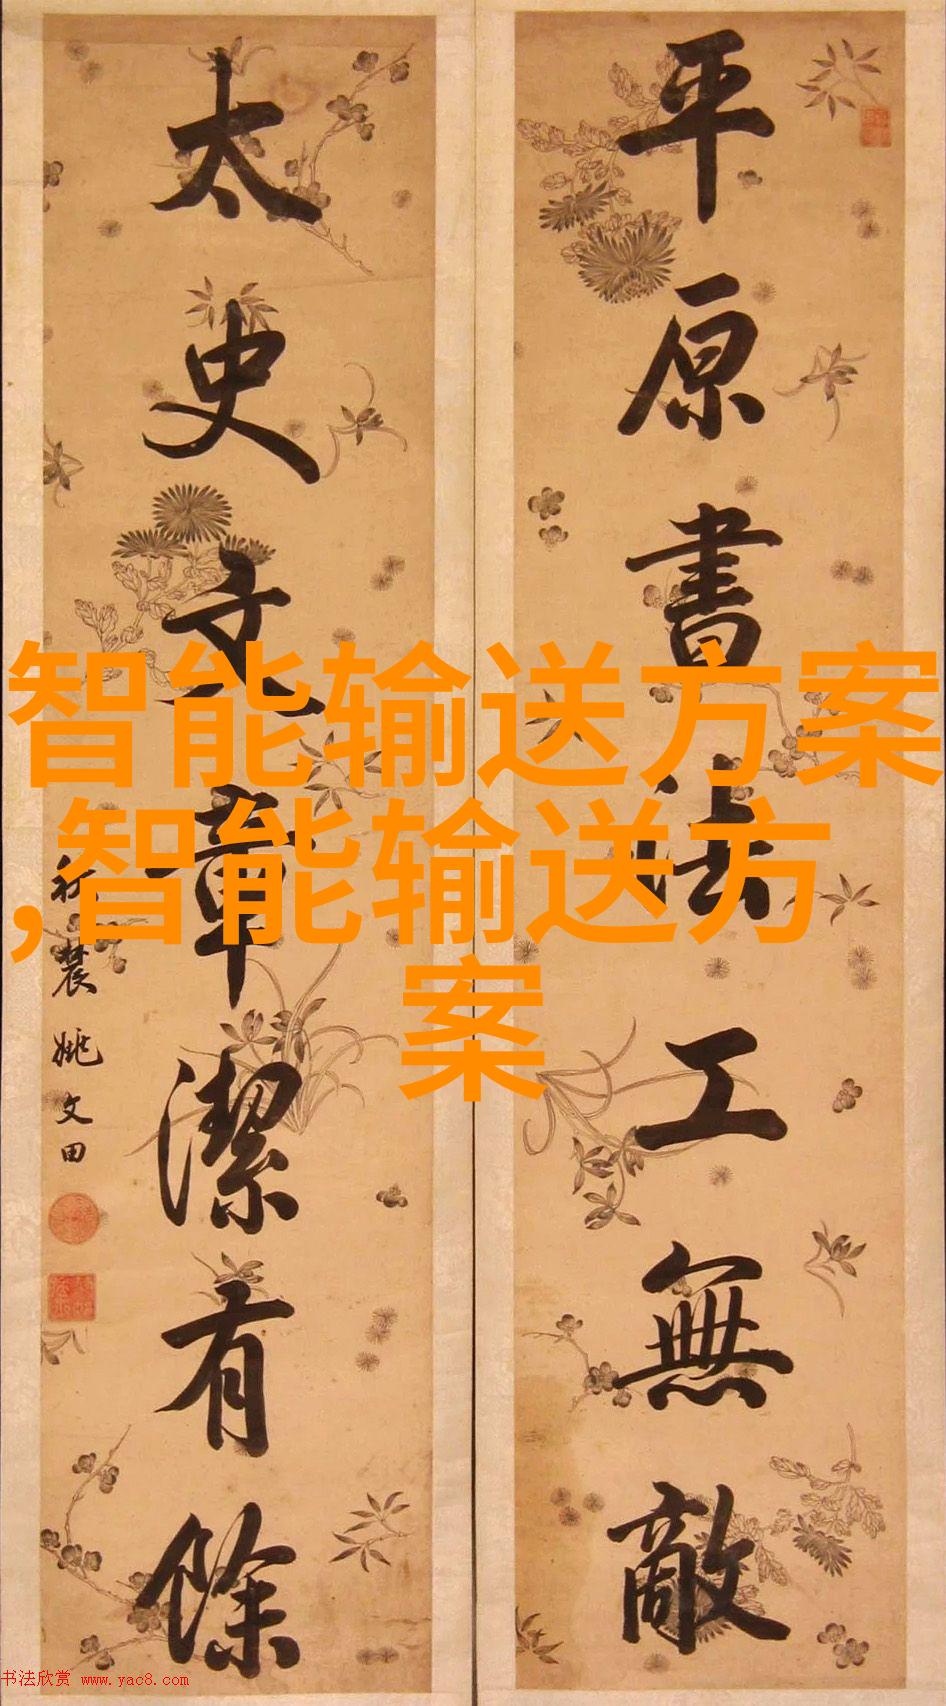 平原書法工無敵
太史文章潔有餘
秋農姚文田
智能输送方案
,智能输送方
案
书法欣赏 www.yac8.com